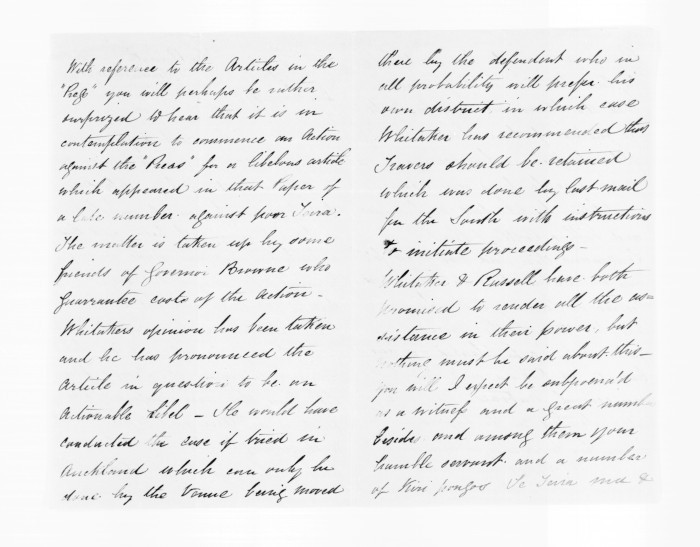 With reference to the Articles in the
"Press" you will perhaps be rather
surprized to hear that it is in
contemplation to commence an Action
against the "Press" for a libelous article
which appeared in that Paper of
a late number against poor Teira.
The matter is taken up by some
friends of Governor Browne who
guarrantee costs of the action -
Whitakers opinion has been taken
and he has pronounced the
Article in question to be an
Actionable Libel - He would have
conducted the case if tried in
Auckland which can only be
done by the Venue being moved
there by the defendent who in
all probability will prefer his
own district in which case
Whitaker has recommended that
Travers should be retained
which was done by last mail
for the South with instructions
to initiate proceedings -
Whitaker & Russell have both
promised to render all the as
sistance in their power, but
nothing must be said about this -
you will I expect be subpoena'd
as a witness and a great number
besides and among them your
humble servant and a number
of Kiri Te Teira and &